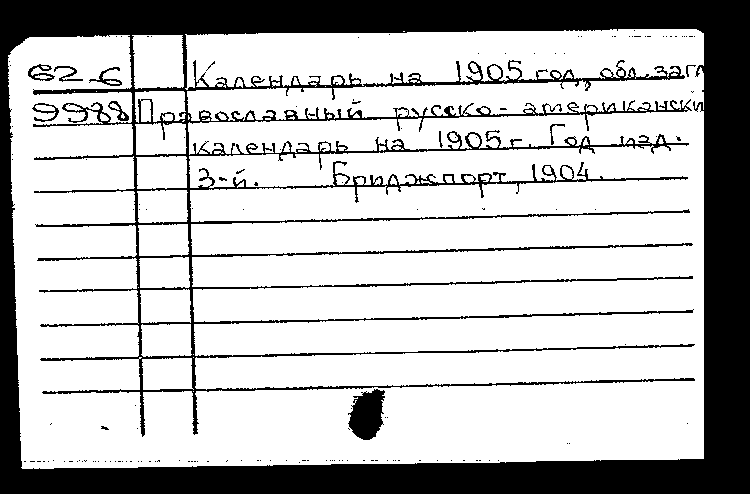 62-6 Календарь на 1905 год, обл. загл
9988 Православный русско-американски
календарь на 1905 г. Год изд.
3-й. Бриджпорт, 1904.